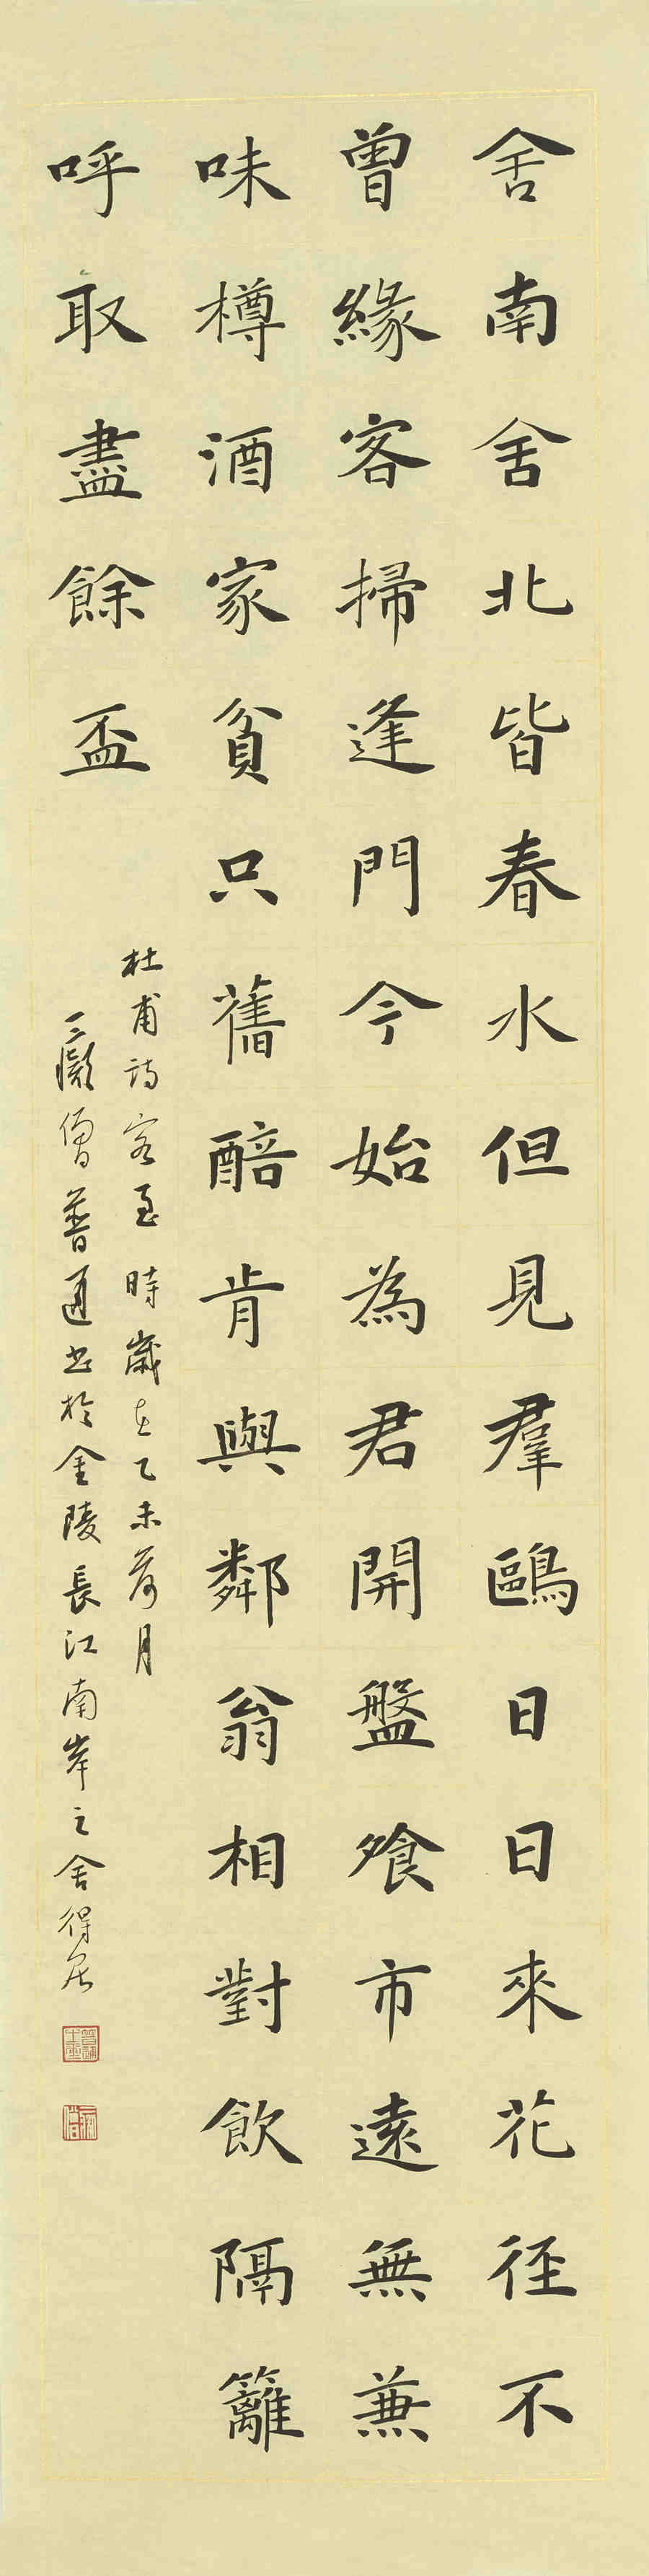 舍南舍北皆春水但見羣鷗日日來花徑不
曾緣客掃蓬門今始為君開盤飧市遠無兼
味樽酒家貧只舊醅肯與鄰翁相對飲隔籬
呼取盡餘盃
杜甫詩客至時歲在乙未荷月
三癡僧普通書於金陵長江南岸之舍得居